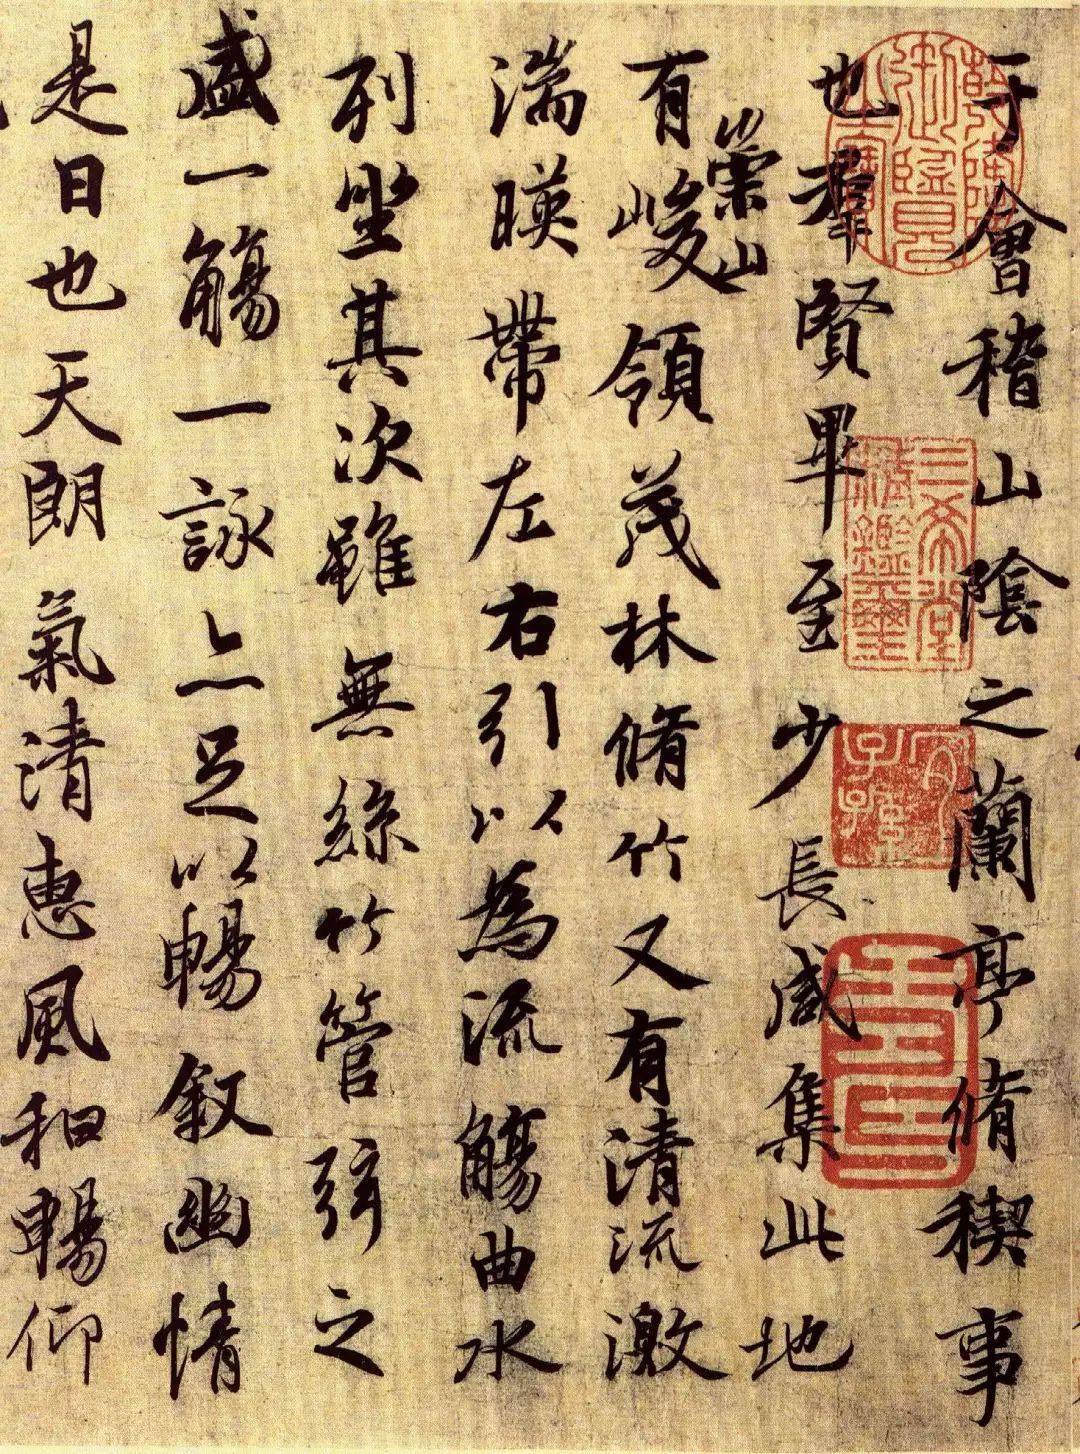 于會稽山陰之蘭亭脩稧事
也羣賢畢至少長咸集此地
有崇山峻領茂林脩竹又有清流激
湍暎帶左右引以為流觴曲水
列坐其次雖無絲竹管弦之
盛一觴一詠亦足以暢敘幽情
是日也天朗氣清惠風和暢仰
嘉慶御覽之寶
三希堂精鑑璽
宜子孫